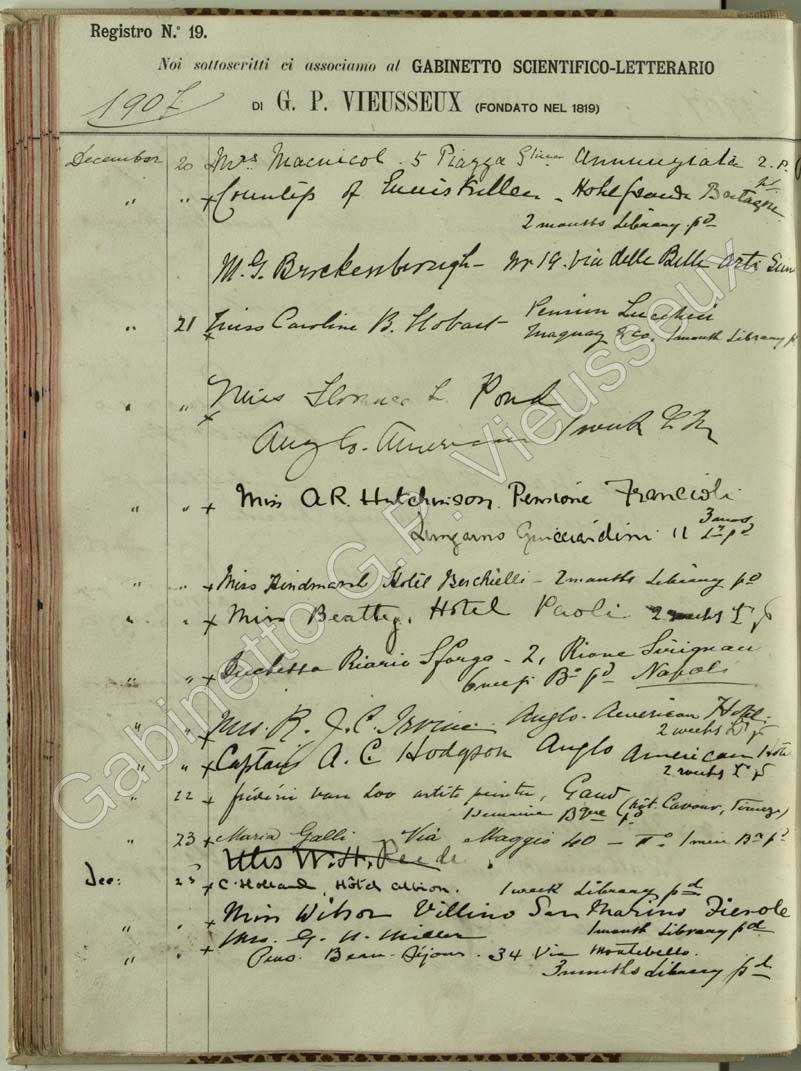 Registro N.º 19.
Noi sottoscritti ci associamo al GABINETTO SCIENTIFICO-LETTERARIO
1907
DI G. P. VIEUSSEUX (FONDATO NEL 1819)
December 20 Mrs Macnicol . 5 Piazza Annunziata 2. P.
" " x Countess of - Hotel Grande Bretagne pd.
2 months Library pd
M. G. Brockenbrough - Nr 19. Via delle Belle Arti
" 21 x Miss Caroline B. Hobart - Pension Lucchesi
Maquay & Co. 1 month Library
" " x Miss Florence L Pond
Anglo-American 1 week
" " x Miss A R. Hutchinson. Pensione Francioli
Lungarno Guicciardini 11 3 mos
pd
" " x Miss Hindmarsh Hotel Berchielli - 2 months Library pd
" " x Miss Beatty, Hotel Paoli 2 weeks
" " x Duchessa Riario Sforza - 2, Rione Sirignano
pd Napoli
" " x Mrs. R. J. C. Irvine Anglo-American Hotel.
2 weeks
" " x Captain A. C Hodgson Anglo American Hotel
2 weeks
" 22 x van Loo artiste peintre, Gand
1 semaine (hôt. Cavour, Firenze)
" 23 x Maria Galli - Via Maggio 40 - IIº
Miss W. H. Reede
Dec: 23 x C. Holland, Hôtel Albion. 1 week Library pd
" " x Miss Wilson Villino San Marino Fiesole
1 month Library pd
" " x Mrs. G. N. Miller
Pens. Beau-Séjour - 34 Via Montebello.
3 months Library pd
Gabinetto G.P. Vieusseux